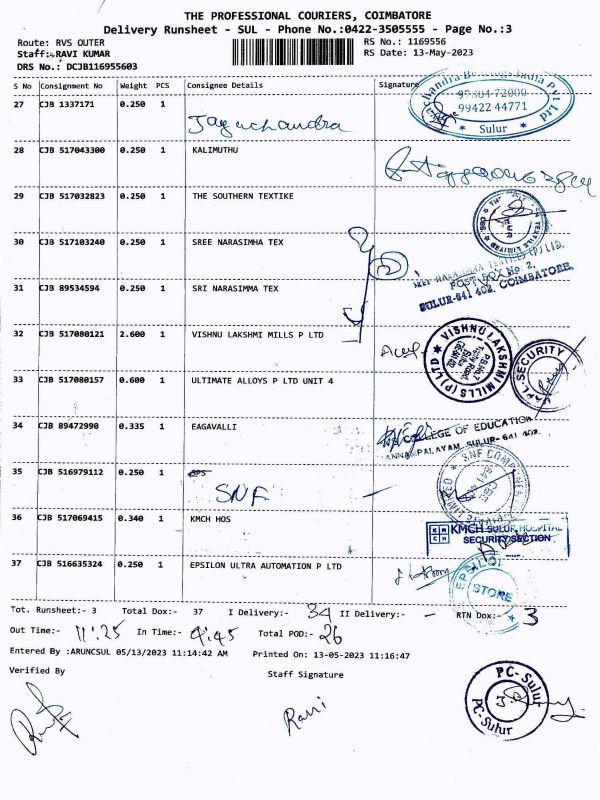 THE PROFESSIONAL COURIERS, COIMBATORE
Delivery Runsheet - SUL - Phone No.:0422-3505555 - Page No.:3
Route: RVS OUTER RS No.: 1169556
Staff:-RAVI KUMAR RS Date: 13-May-2023
DRS No.: DCJB116955603
S No Consignment No Weight PCS Consignee Details Signature
27 CJB 1337171 0.250 1
95804-72000
99422 44771
Sulur
28 CJB 517043300 0.250 1 KALIMUTHU
29 CJB 517032823 0.250 1 THE SOUTHERN TEXTIKE
30 CJB 517103240 0.250 1 SREE NARASIMHA TEX
POST BOX No. 2,
SULUR-641 402. COIMBATORE.
31 CJB 89534594 0.250 1 SRI NARASIMMA TEX
32 CJB 517080121 2.600 1 VISHNU LAKSHMI MILLS P LTD
VISHNU LAKSHMI MILLS (P) LTD
33 CJB 517080157 0.600 1 ULTIMATE ALLOYS P LTD UNIT 4
SECURITY
34 CJB 89472990 0.335 1 EAGAVALLI
COLLEGE OF EDUCATION
PALAYAM, SULUR-641 402.
35 CJB 516979112 0.250 1
SNF
36 CJB 517069415 0.340 1 KMCH HOS
KMCH SULUR HOSPITAL
SECURITY SECTION
37 CJB 516635324 0.250 1 EPSILON ULTRA AUTOMATION P LTD
STORE
Tot. Runsheet:- 3 Total Dox:- 37 I Delivery:- 34 II Delivery:- - RTN Dox:- 3
Out Time:- 11:25 In Time:- 4:45 Total POD:- 26
Entered By :ARUNCSUL 05/13/2023 11:14:42 AM Printed On: 13-05-2023 11:16:47
Verified By Staff Signature
Ravi
PC-Sulur
PC-Sulur